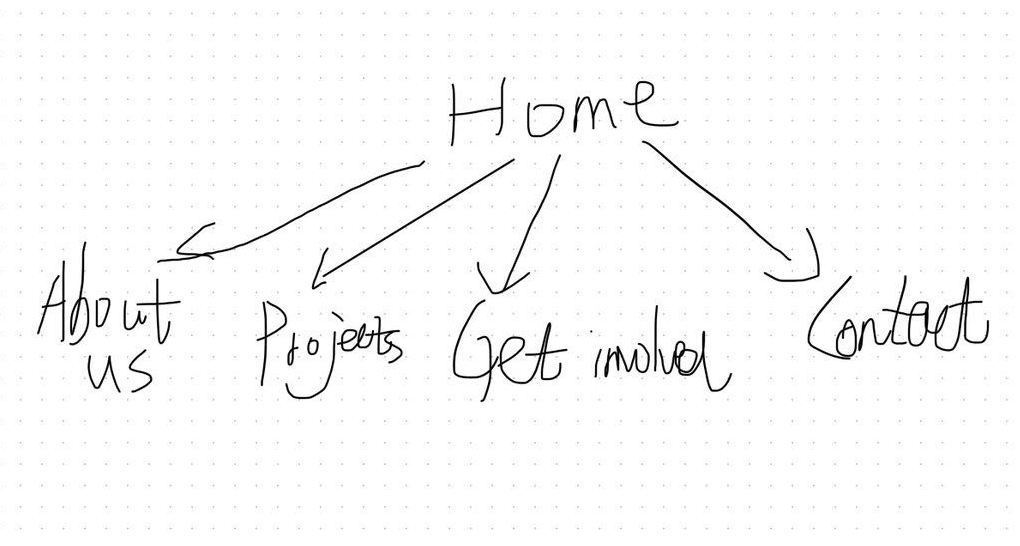 Home
About us
Projects
Get involved
Contact